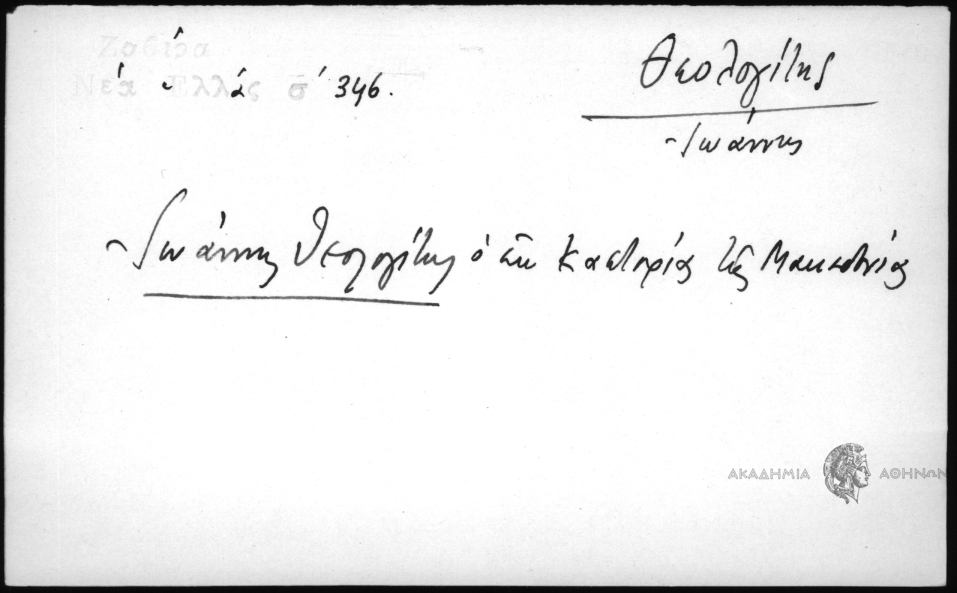 Ζαβίρα
Νέα Ἑλλάς σ' 346.
Θεολογίτης
Ἰωάννης
Ἰωάννης Θεολογίτης ὁ ἐκ Καστορίας τῆς Μακεδονίας
ΑΚΑΔΗΜΙΑ ΑΘΗΝΩΝ